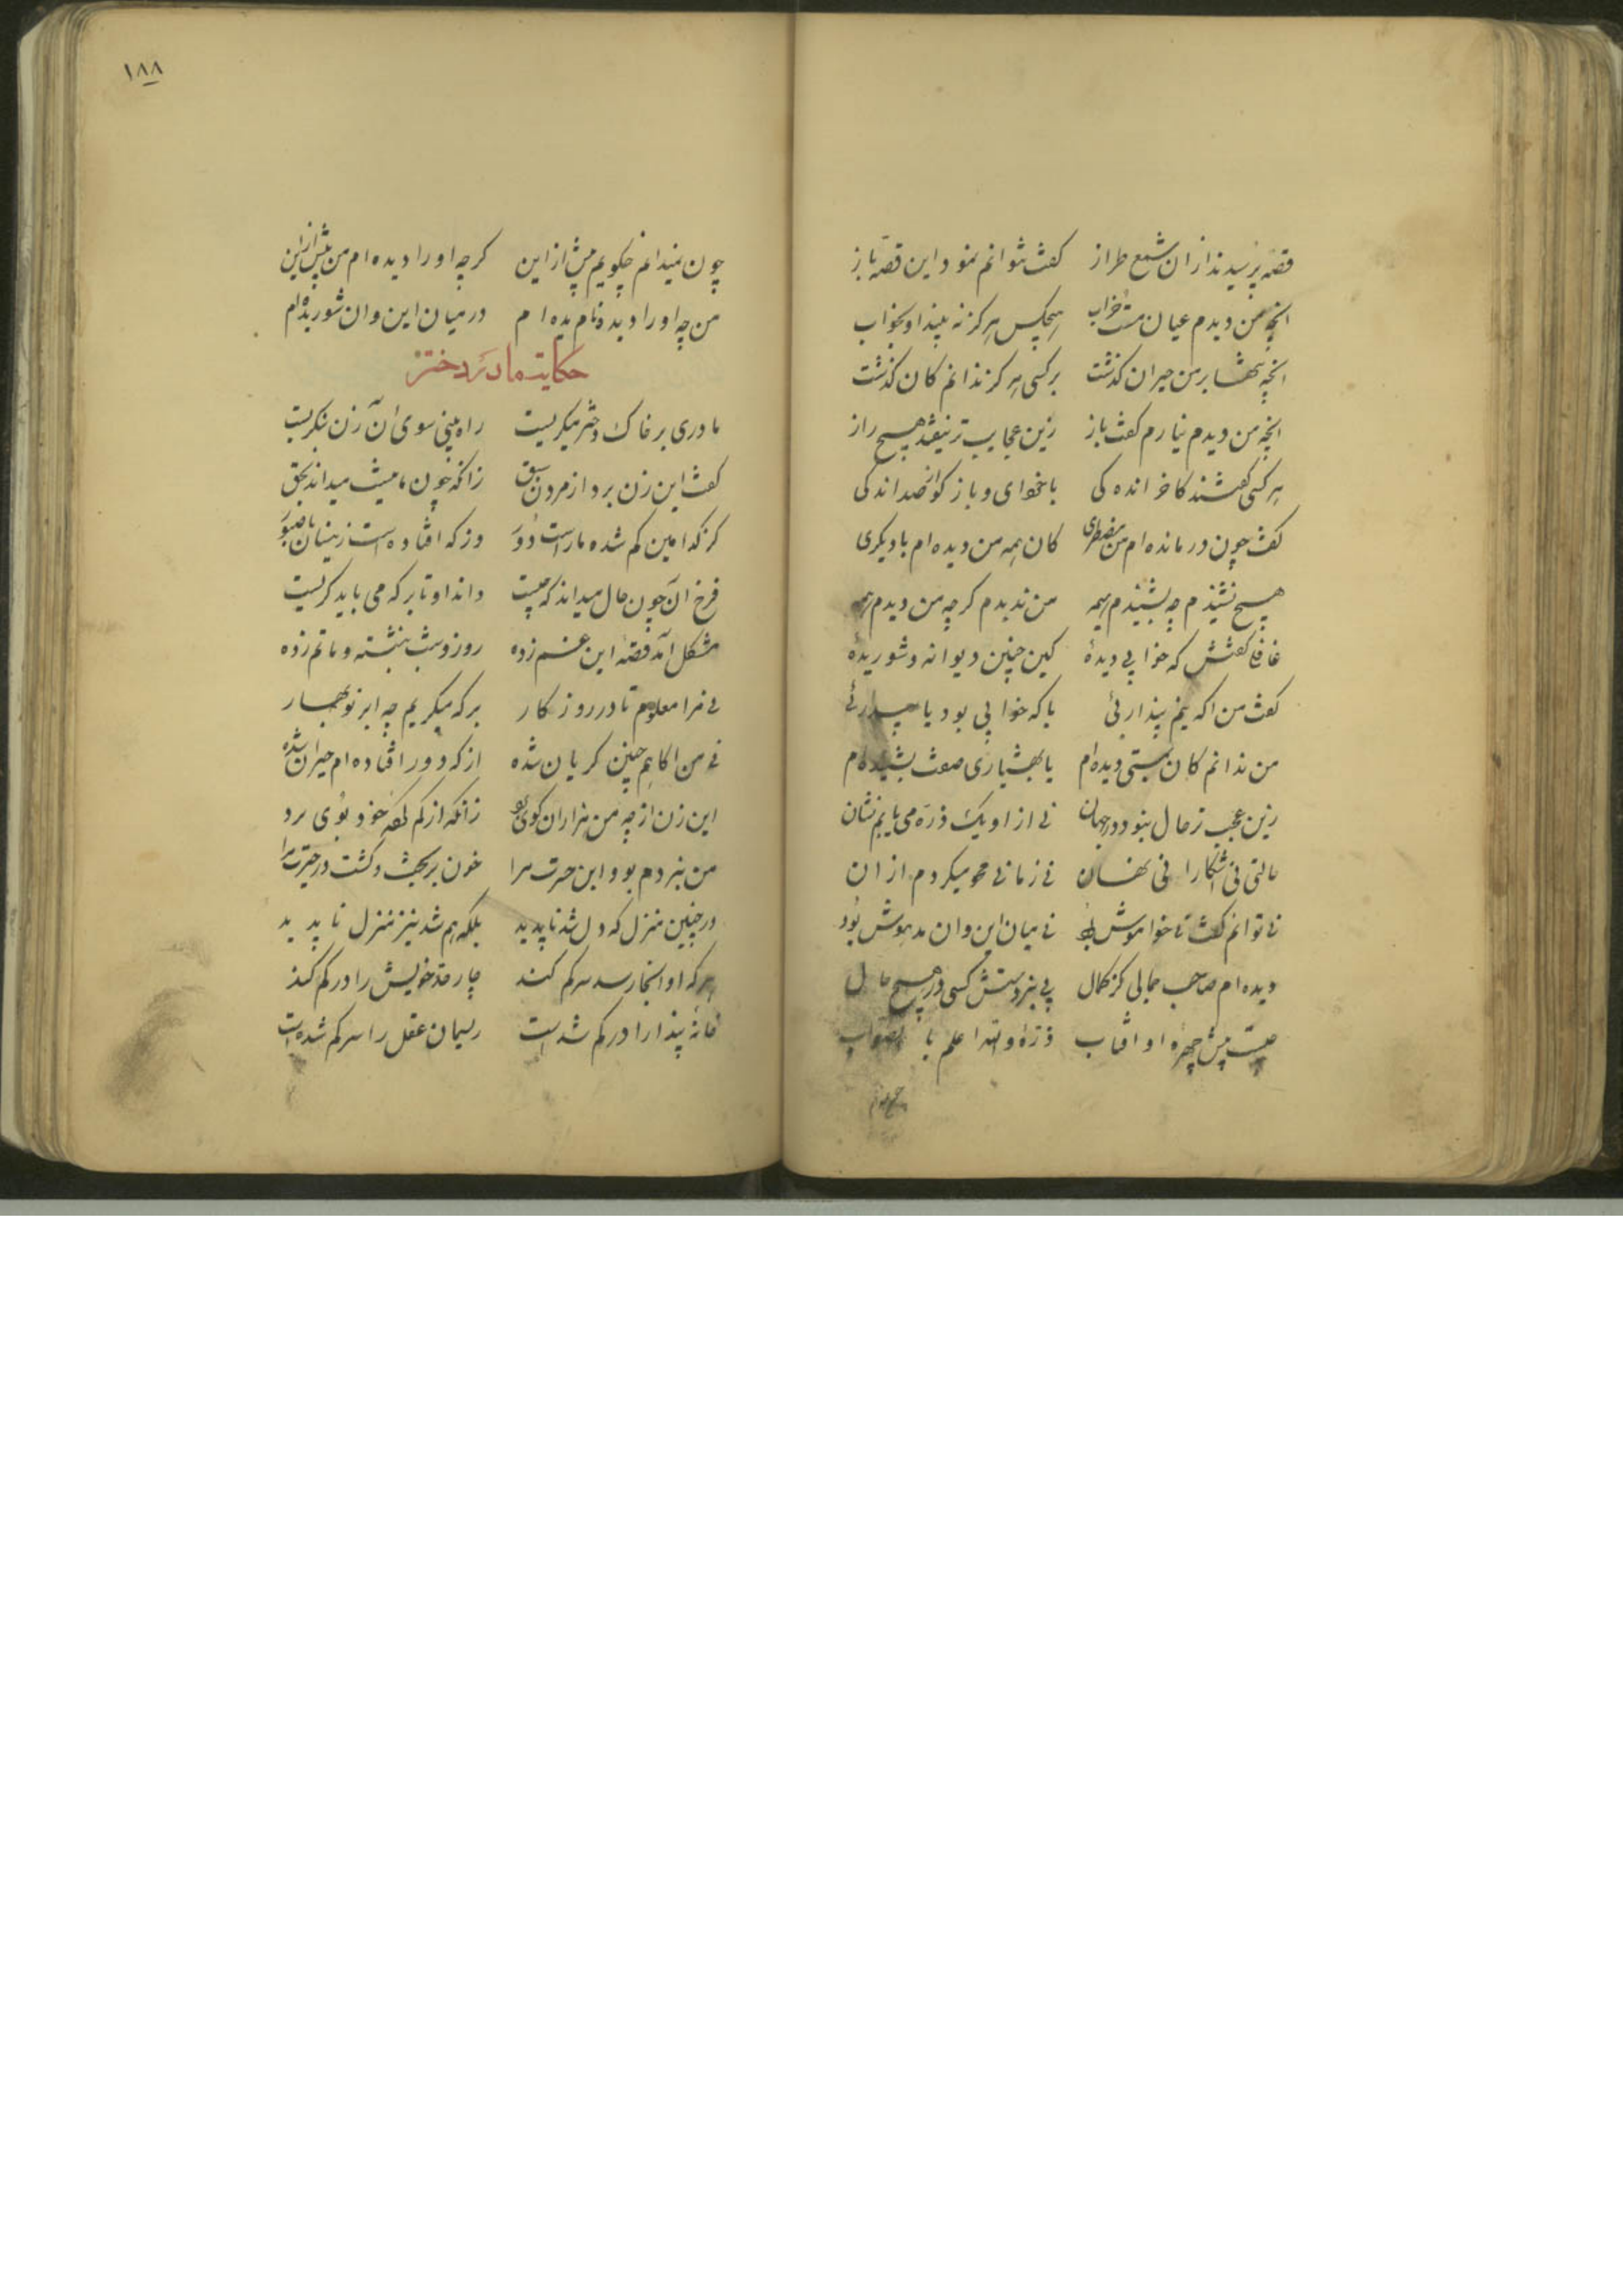 قصه پرسیدند ازان شمع طراز گفت نتوانم نمود این قصه باز
انچه من دیدم عیان مست خراب هیچکس هرگز نه بیند او بخواب
انچه تنها بر من حیران گذشت برکسی هرگز ندانم کان گذشت
انچه من دیدم نیارم گفت باز زین عجایب تر نیفتد هیچ راز
هر کسی گفتند کاخر اندکی باخود ای و باز گو از صد اندکی
گفت چون درمانده ام من مضطری کان همه من دیده ام یا دیگری
هیچ نشنیدم چه بشنیدم همه من ندیدم گرچه من دیدم همه
غافلی گفتش که خوابی دیدهٔ کین چنین دیوانه و شوریدهٔ
گفت من اگه نیم پنداریئی یا که خوابی بود یا بیداریئی
من ندانم کان بمستی دیده ام یا بهشیاری صفت بشنیده ام
زین عجب تر حال نبود در جهان نی از او یک ذره می یابم نشان
حالتی نی اشکارا نی نهان نی زمانی محو میکردم ازان
نی توانم گفت نی خواموش بود نی میان این وان مدهوش بود
دیده ام صاحب جمالی کز کمال پی نبردستش کسی در هیچ حال
چیست پیش چهرهٔ او افتاب ذرهٔ والله اعلم بالصواب
۱۸۸
چون نمیدانم چگویم پیش ازاین گرچه او را دیده ام من پیش ازین
من چه اورا دیده ونادیده ام درمیان این وان شوریده ام
حکایت مادر و دختر
مادری بر خاک دختر میگریست راه بینی سوی ان زن بنگریست
گفت این زن برد از مردن سبق زانکه چون ما نیست میداند بحق
کز کدامین گم شده ماراست دور وز که افتاده است زینسان ناصبور
فرخ ان چون حال میداند که چیست داند او تا بر که می باید گریست
مشکل امد قصهٔ این غم زده روز وشب بنشسته و ماتم زده
نی مرا معلوم تا در روزگار بر که میگریم چه ابر نوبهار
نی من اگاهم چنین گریان شده از که دور افتاده ام حیران شده
این زن از چه من هزاران گوی برد زانکه از گم کردهٔ خود بوی برد
من نبردم بو و این حسرت مرا خون بریخت و کشت در حیرت مرا
در چنین منزل که دل شد ناپدید بلکه هم شد نیز منزل ناپدید
هرکه او انجا رسد سر گم کند چار حد خویش را در گم کند
خانهٔ پندار را در گم شدست ریسمان عقل را سر گم شده است